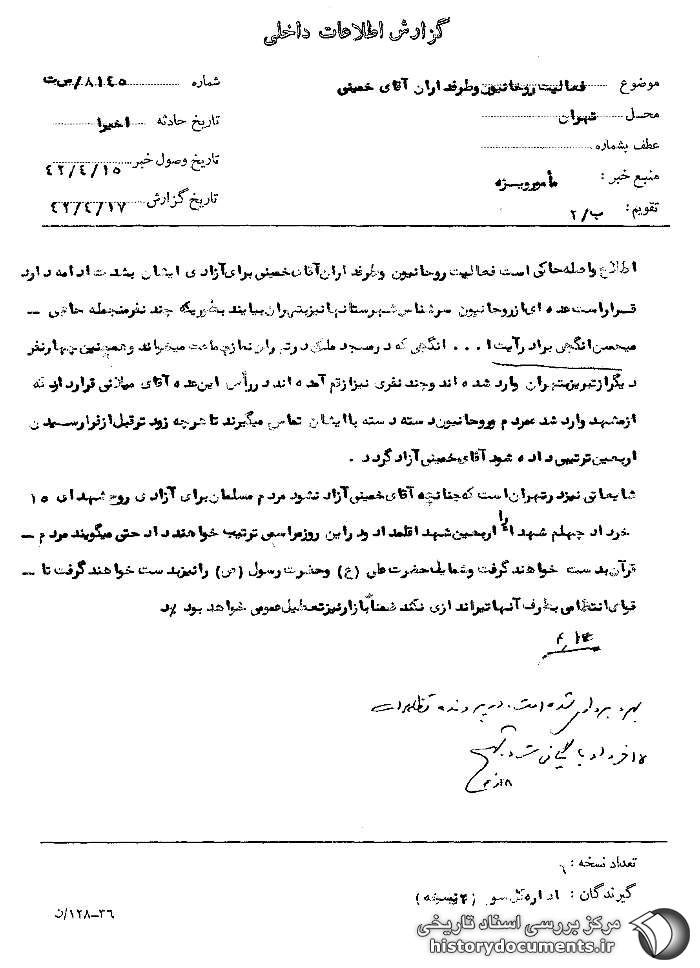 گزارش اطلاعات داخلی
موضوع فعالیت روحانیون و طرفداران آقای خمینی
شماره ۸۱۴۵/س ت
محل تهران
تاریخ حادثه اخیرا
عطف بشماره
تاریخ وصول خبر ۴۲/۴/۱۵
منبع خبر : مأمور ویژه
تاریخ گزارش ۴۲/۴/۱۷
تقویم : ب/۲
اطلاع واصله حاکی است فعالیت روحانیون و طرفداران آقای خمینی برای آزادی ایشان بشدت ادامه دارد
قرار است عده ای از روحانیون سرشناس شهرستانها نیز بتهران بیایند بطوریکه چند نفر منجمله حاجی –
میحسن انگجی برادر آیت ا . . . انگجی که در مسجد ملک در تهران نماز جماعت میخواند و همچنین چهار نفر
دیگر از تبریز بتهران وارد شده اند و چند نفری نیز از قم آمده اند در رأس این عده آقای میلانی قرار دارد که
از مشهد وارد شده مردم و روحانیون دسته دسته با ایشان تماس میگیرند تا هر چه زود تر قبل از فرا رسیدن
اربعین ترتیبی داده شود آقای خمینی آزاد گردد .
شایعاتی نیز در تهران است که چنانچه آقای خمینی آزاد نشود مردم مسلمان برای آزادی روح شهدای ۱۵
خرداد چهلم شهدا را اربعین شهدا قلمداد و در این روز مراسمی ترتیب خواهند داد حتی میگویند مردم –
قرآن بدست خواهند گرفت و شمایل حضرت علی (ع) و حضرت رسول (ص) را نیز بدست خواهند گرفت تا –
قوای انتظامی بطرف آنها تیراندازی نکند ضمناً بازار نیز تعطیل عمومی خواهد بود
بهره برداری شده است . در پرونده تظاهرات
۱۵ خرداد بایگانی شود
تعداد نسخه :
گیرندگان : اداره کل سوم (۲ نسخه)
۳۶–۱۲۸/ن
مرکز بررسی اسناد تاریخی
historydocuments.ir